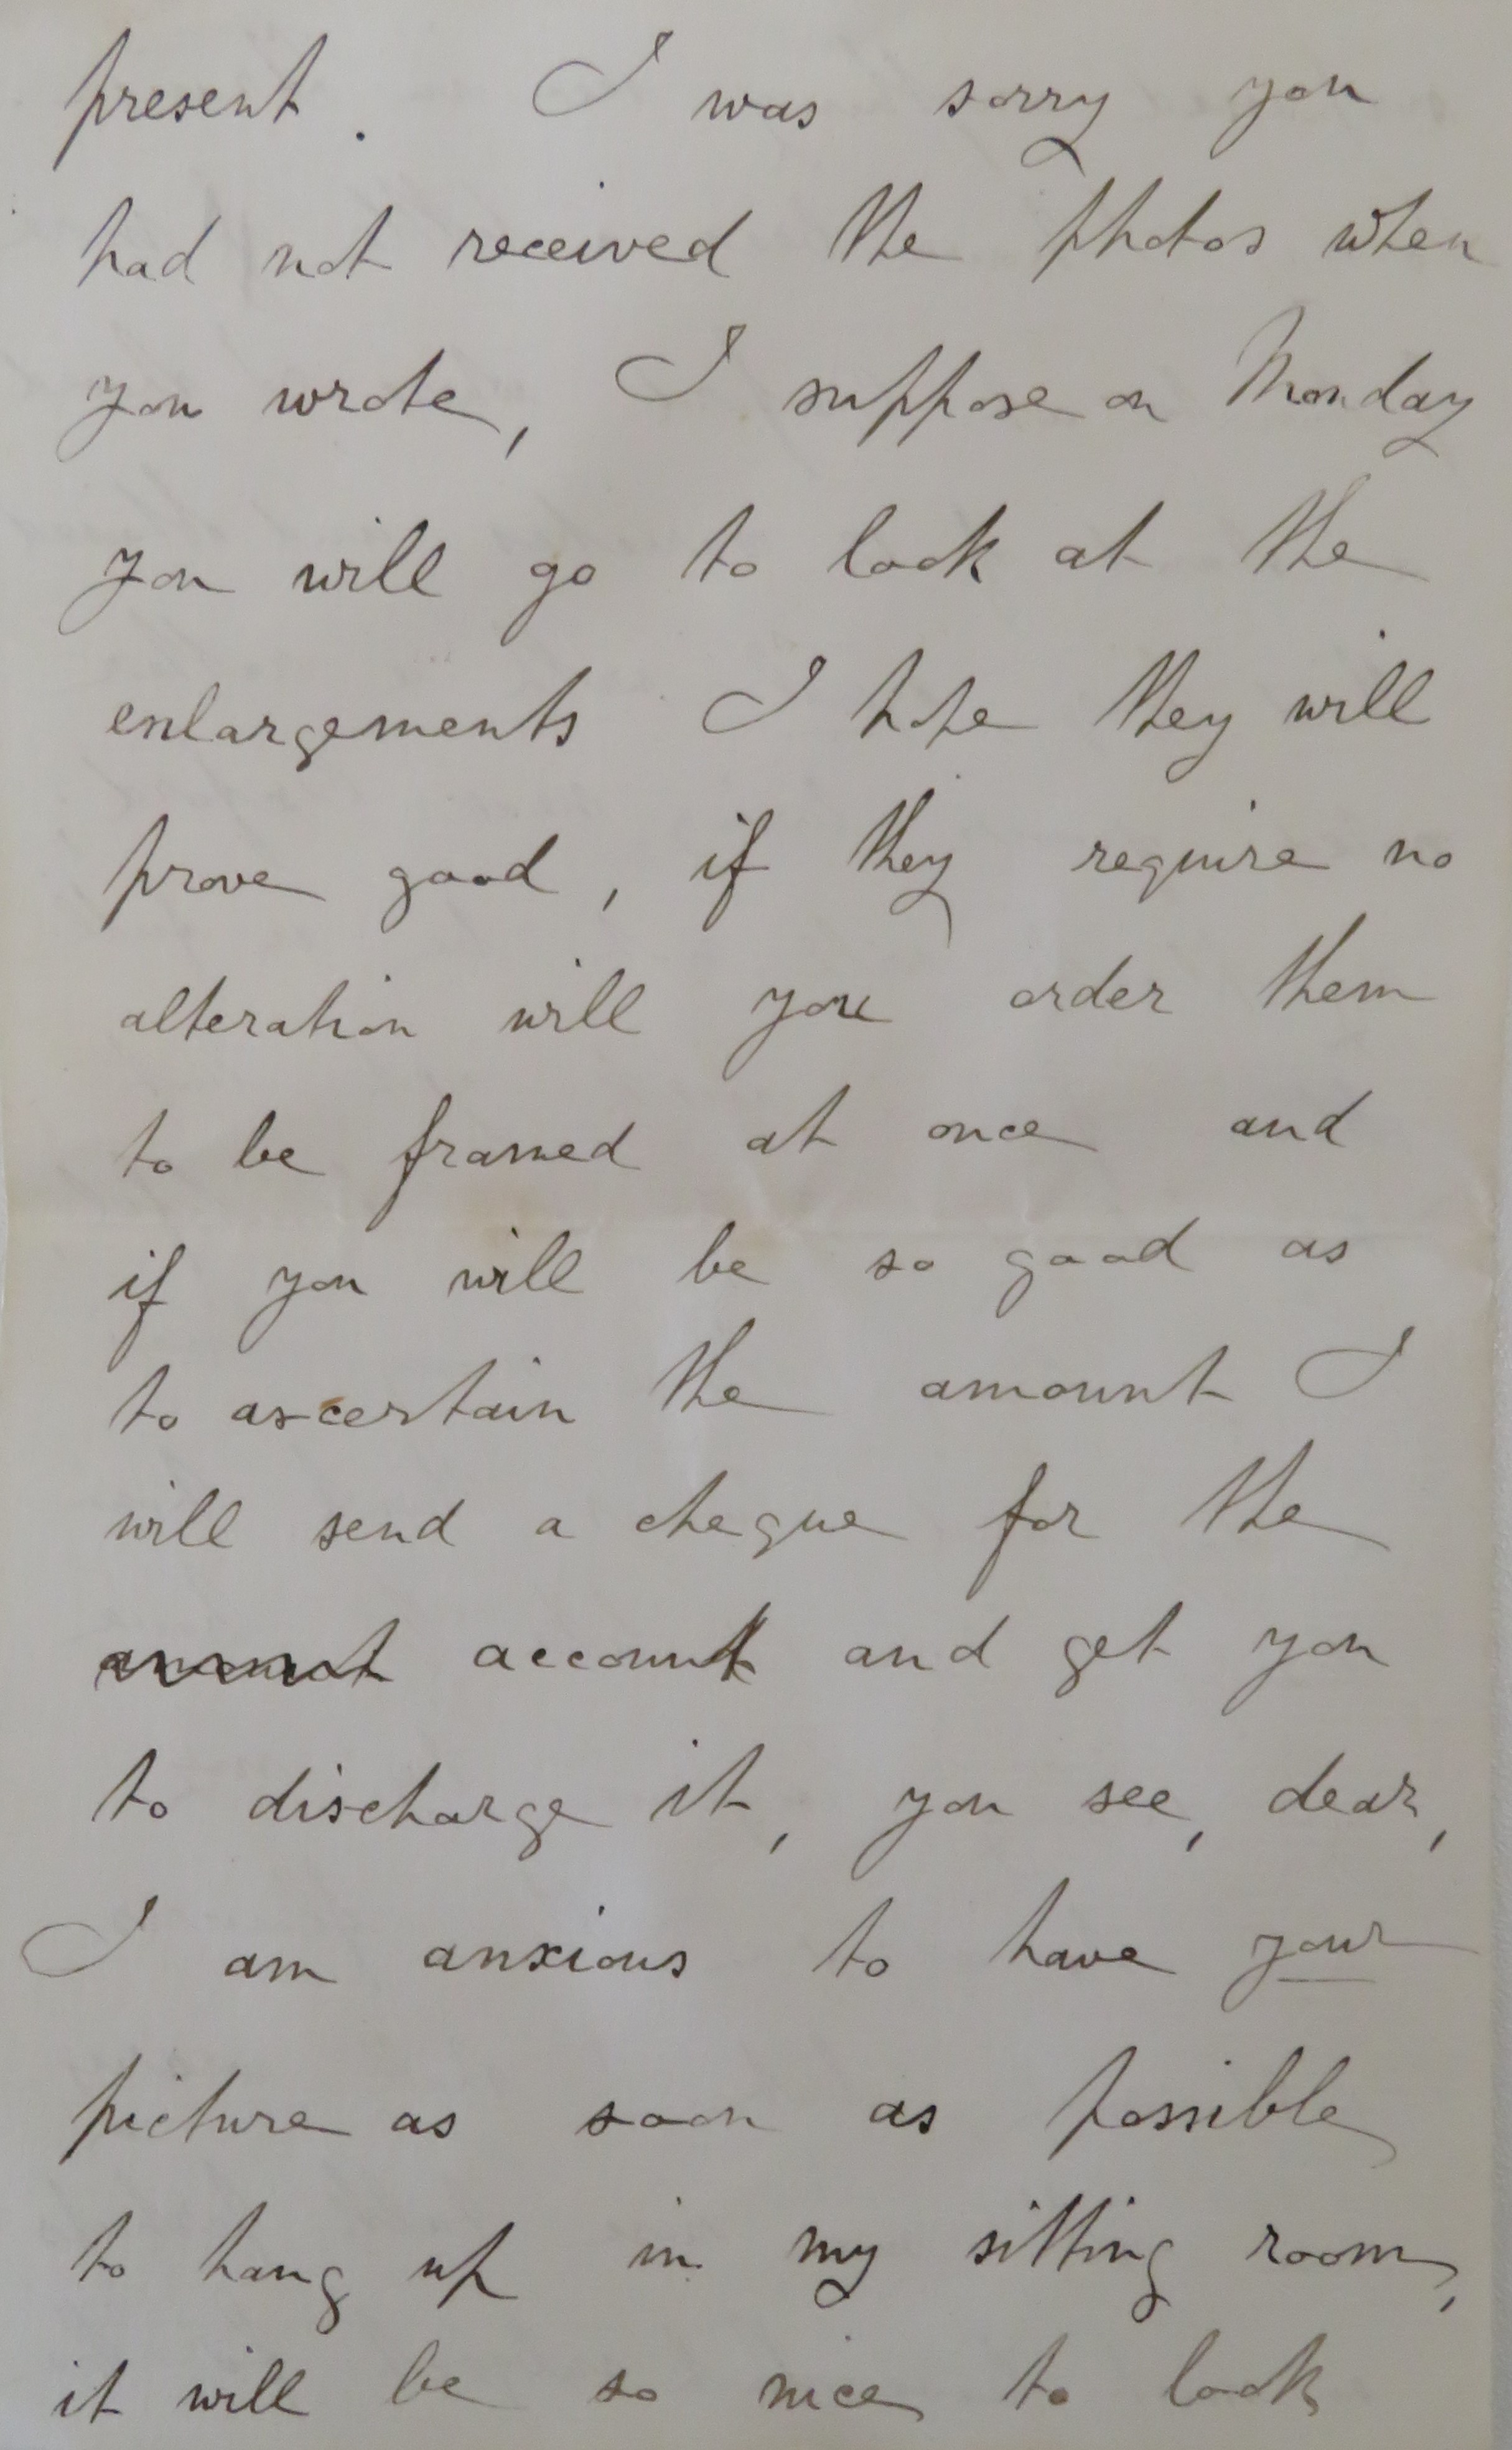 present. I was sorry you
had not received the photos when
you wrote, I suppose on Monday
you will go to look at the
enlargements I hope they will
prove good, if they require no
alteration will you order them
to be framed at once and
if you will be so good as
to ascertain the amount I
will send a cheque for the
amount account and get you
to discharge it, you see, dear,
I am anxious to have your
picture as soon as possible
to hang up in my sitting room,
it will be so nice to look